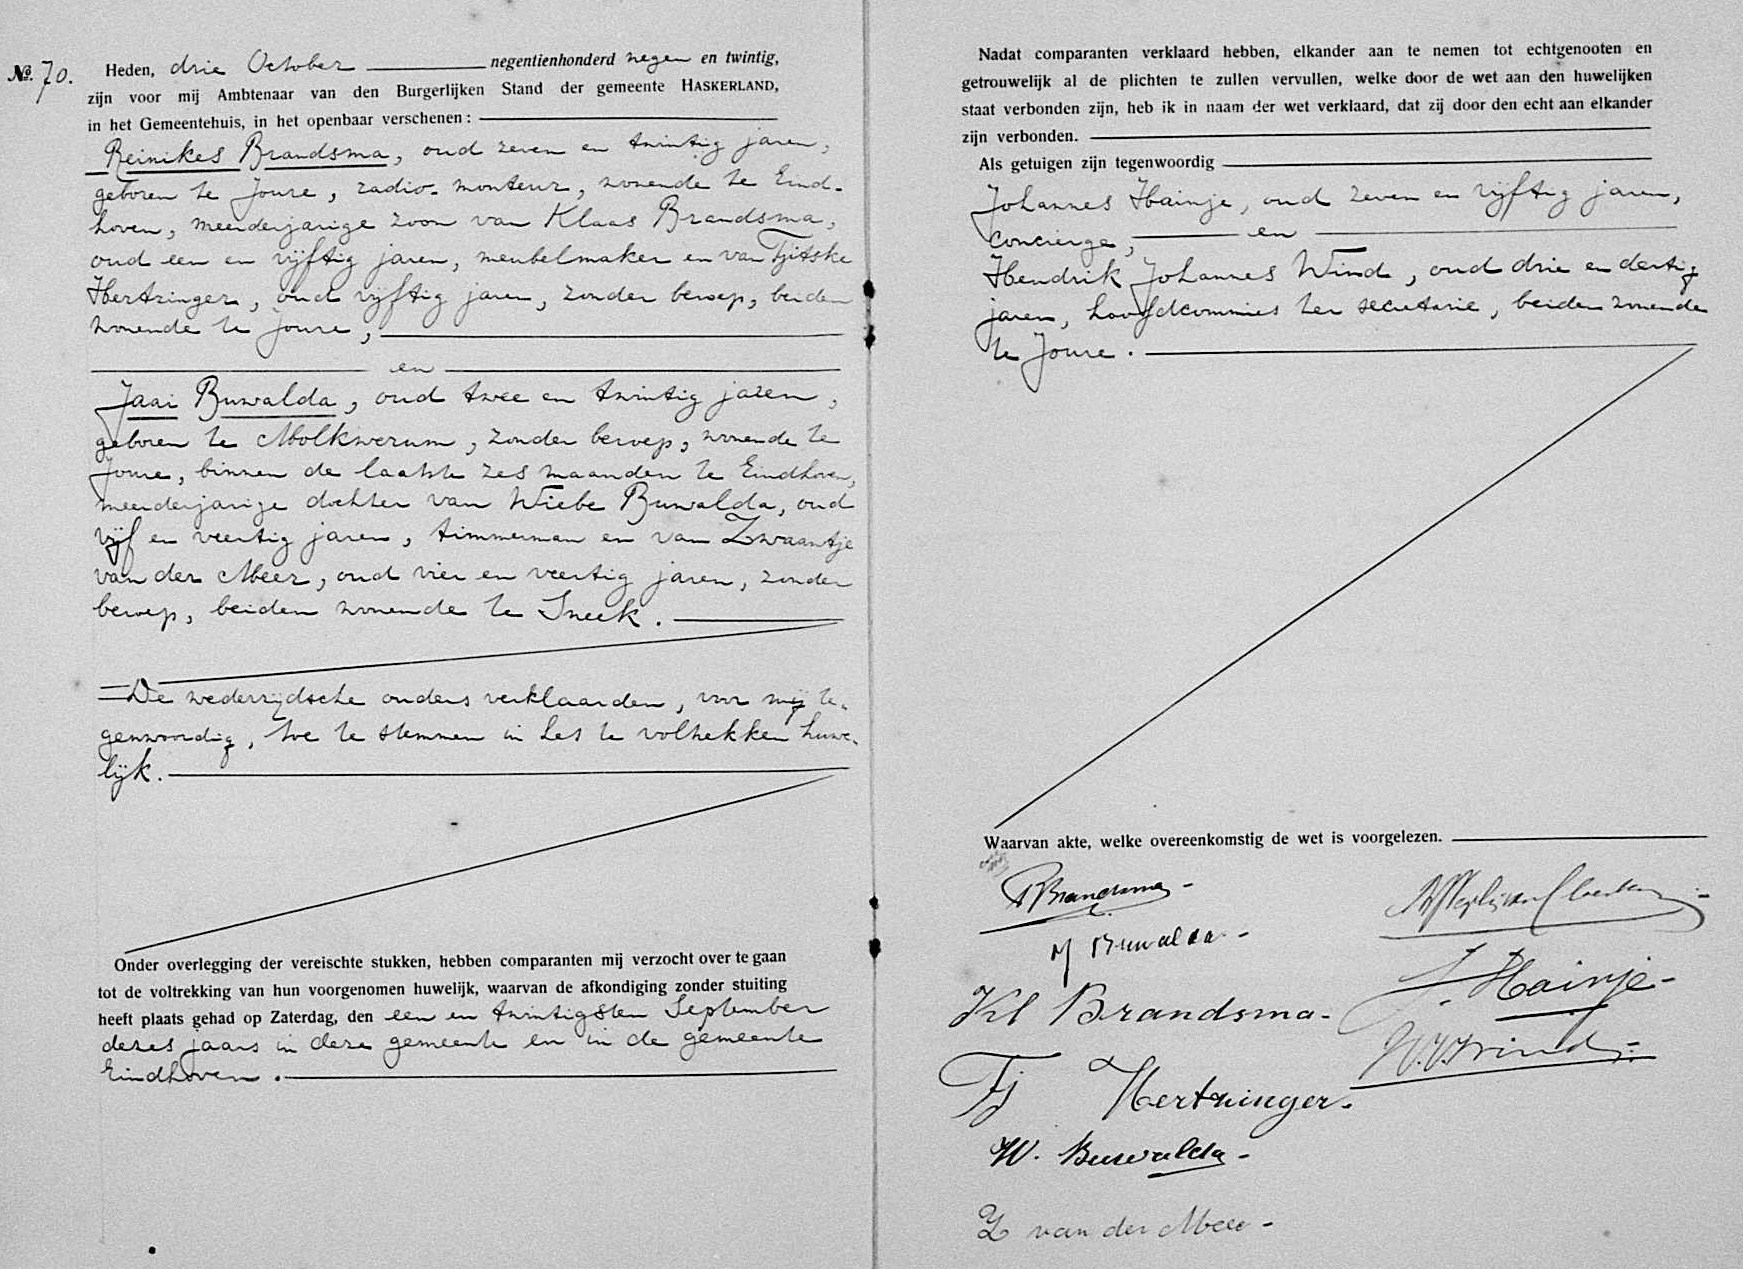 No. 70.
Heden, drie October negentienhonderd negen en twintig,
zijn voor mij Ambtenaar van den Burgerlijken Stand der gemeente HASKERLAND,
in het Gemeentehuis, in het openbaar verschenen:
Reinikes Brandsma, oud zeven en twintig jaren,
geboren te Joure, radio-monteur, wonende te Eind-
hoven, meerderjarige zoon van Klaas Brandsma,
oud een en vijftig jaren, meubelmaker en van Tjitske
Hertzinger, oud vijftig jaren, zonder beroep, beiden
wonende te Joure,
en
Jaai Buwalda, oud twee en twintig jaren,
geboren te Molkwerum, zonder beroep, wonende te
Joure, binnen de laatste zes maanden te Eindhoven,
meerderjarige dochter van Wiebe Buwalda, oud
vijf en veertig jaren, timmerman en van Zwaantje
van der Meer, oud vier en veertig jaren, zonder
beroep, beiden wonende te Sneek.
De wederzijdsche ouders verklaarden, voor mij te-
genwoordig, toe te stemmen in het te voltrekken huwe-
lijk.
Onder overlegging der vereischte stukken, hebben comparanten mij verzocht over te gaan
tot de voltrekking van hun voorgenomen huwelijk, waarvan de afkondiging zonder stuiting
heeft plaats gehad op Zaterdag, den een en twintigsten September
dezes jaars in deze gemeente en in de gemeente
Eindhoven.
Nadat comparanten verklaard hebben, elkander aan te nemen tot echtgenooten en
getrouwelijk al de plichten te zullen vervullen, welke door de wet aan den huwelijken
staat verbonden zijn, heb ik in naam der wet verklaard, dat zij door den echt aan elkander
zijn verbonden.
Als getuigen zijn tegenwoordig
Johannes Hainje, oud zeven en vijftig jaren,
concierge, en
Hendrik Johannes Wind, oud drie en dertig
jaren, hoofdcommies ter secretarie, beiden wonende
te Joure.
Waarvan akte, welke overeenkomstig de wet is voorgelezen.
R Brandsma
J Buwalda
Kl Brandsma
J. Hainje
H.J. Wind
Tj Hertzinger
W. Buwalda
Z van der Meer